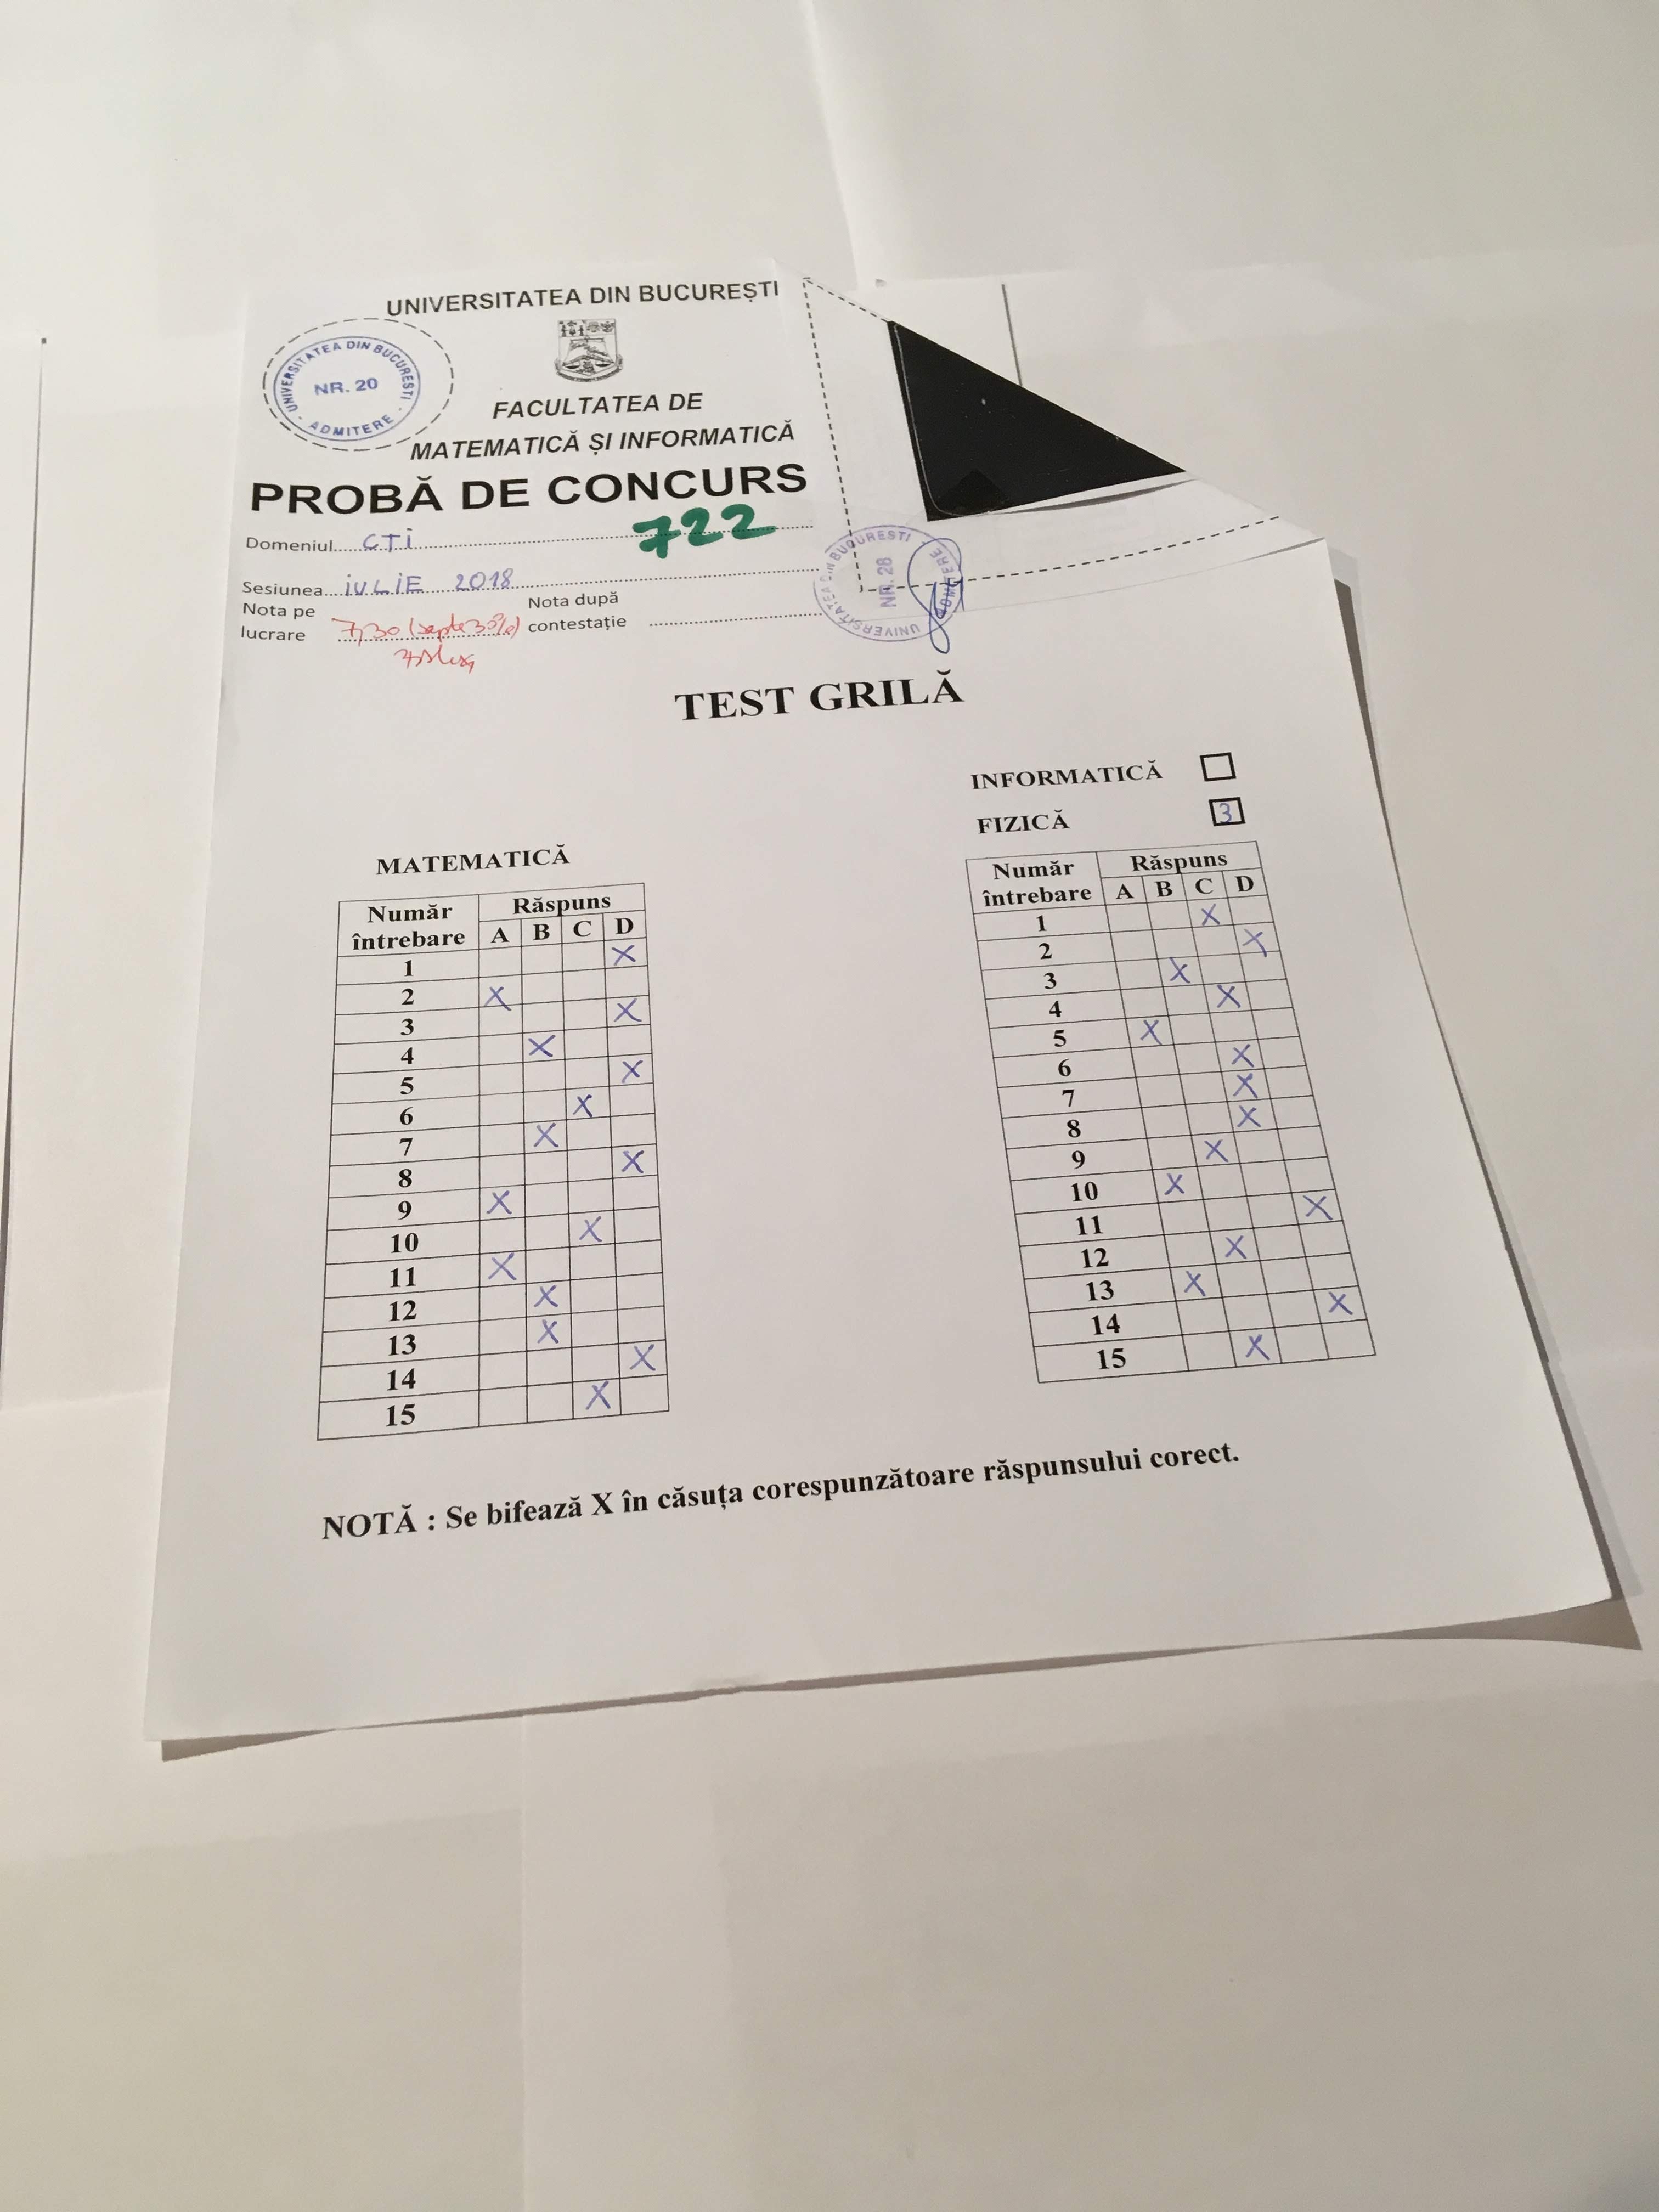 UNIVERSITATEA DIN BUCUREȘTI
UNIVERSITATEA DIN BUCURESTI
NR. 20
- ADMITERE -
FACULTATEA DE
MATEMATICĂ ȘI INFORMATICĂ
PROBĂ DE CONCURS
722
Domeniul CTI
Sesiunea IULIE 2018
Nota pe lucrare 7,30 (șapte 30%)
Nota după contestație
UNIVERSITATEA DIN BUCURESTI
NR. 28
ADMITERE
TEST GRILĂ
INFORMATICĂ
FIZICĂ 3
MATEMATICĂ
Număr întrebare Răspuns
A B C D
1 X
2 X
3 X
4 X
5 X
6 X
7 X
8 X
9 X
10 X
11 X
12 X
13 X
14 X
15 X
Număr întrebare Răspuns
A B C D
1 X
2 X
3 X
4 X
5 X
6 X
7 X
8 X
9 X
10 X
11 X
12 X
13 X
14 X
15 X
NOTĂ : Se bifează X în căsuța corespunzătoare răspunsului corect.